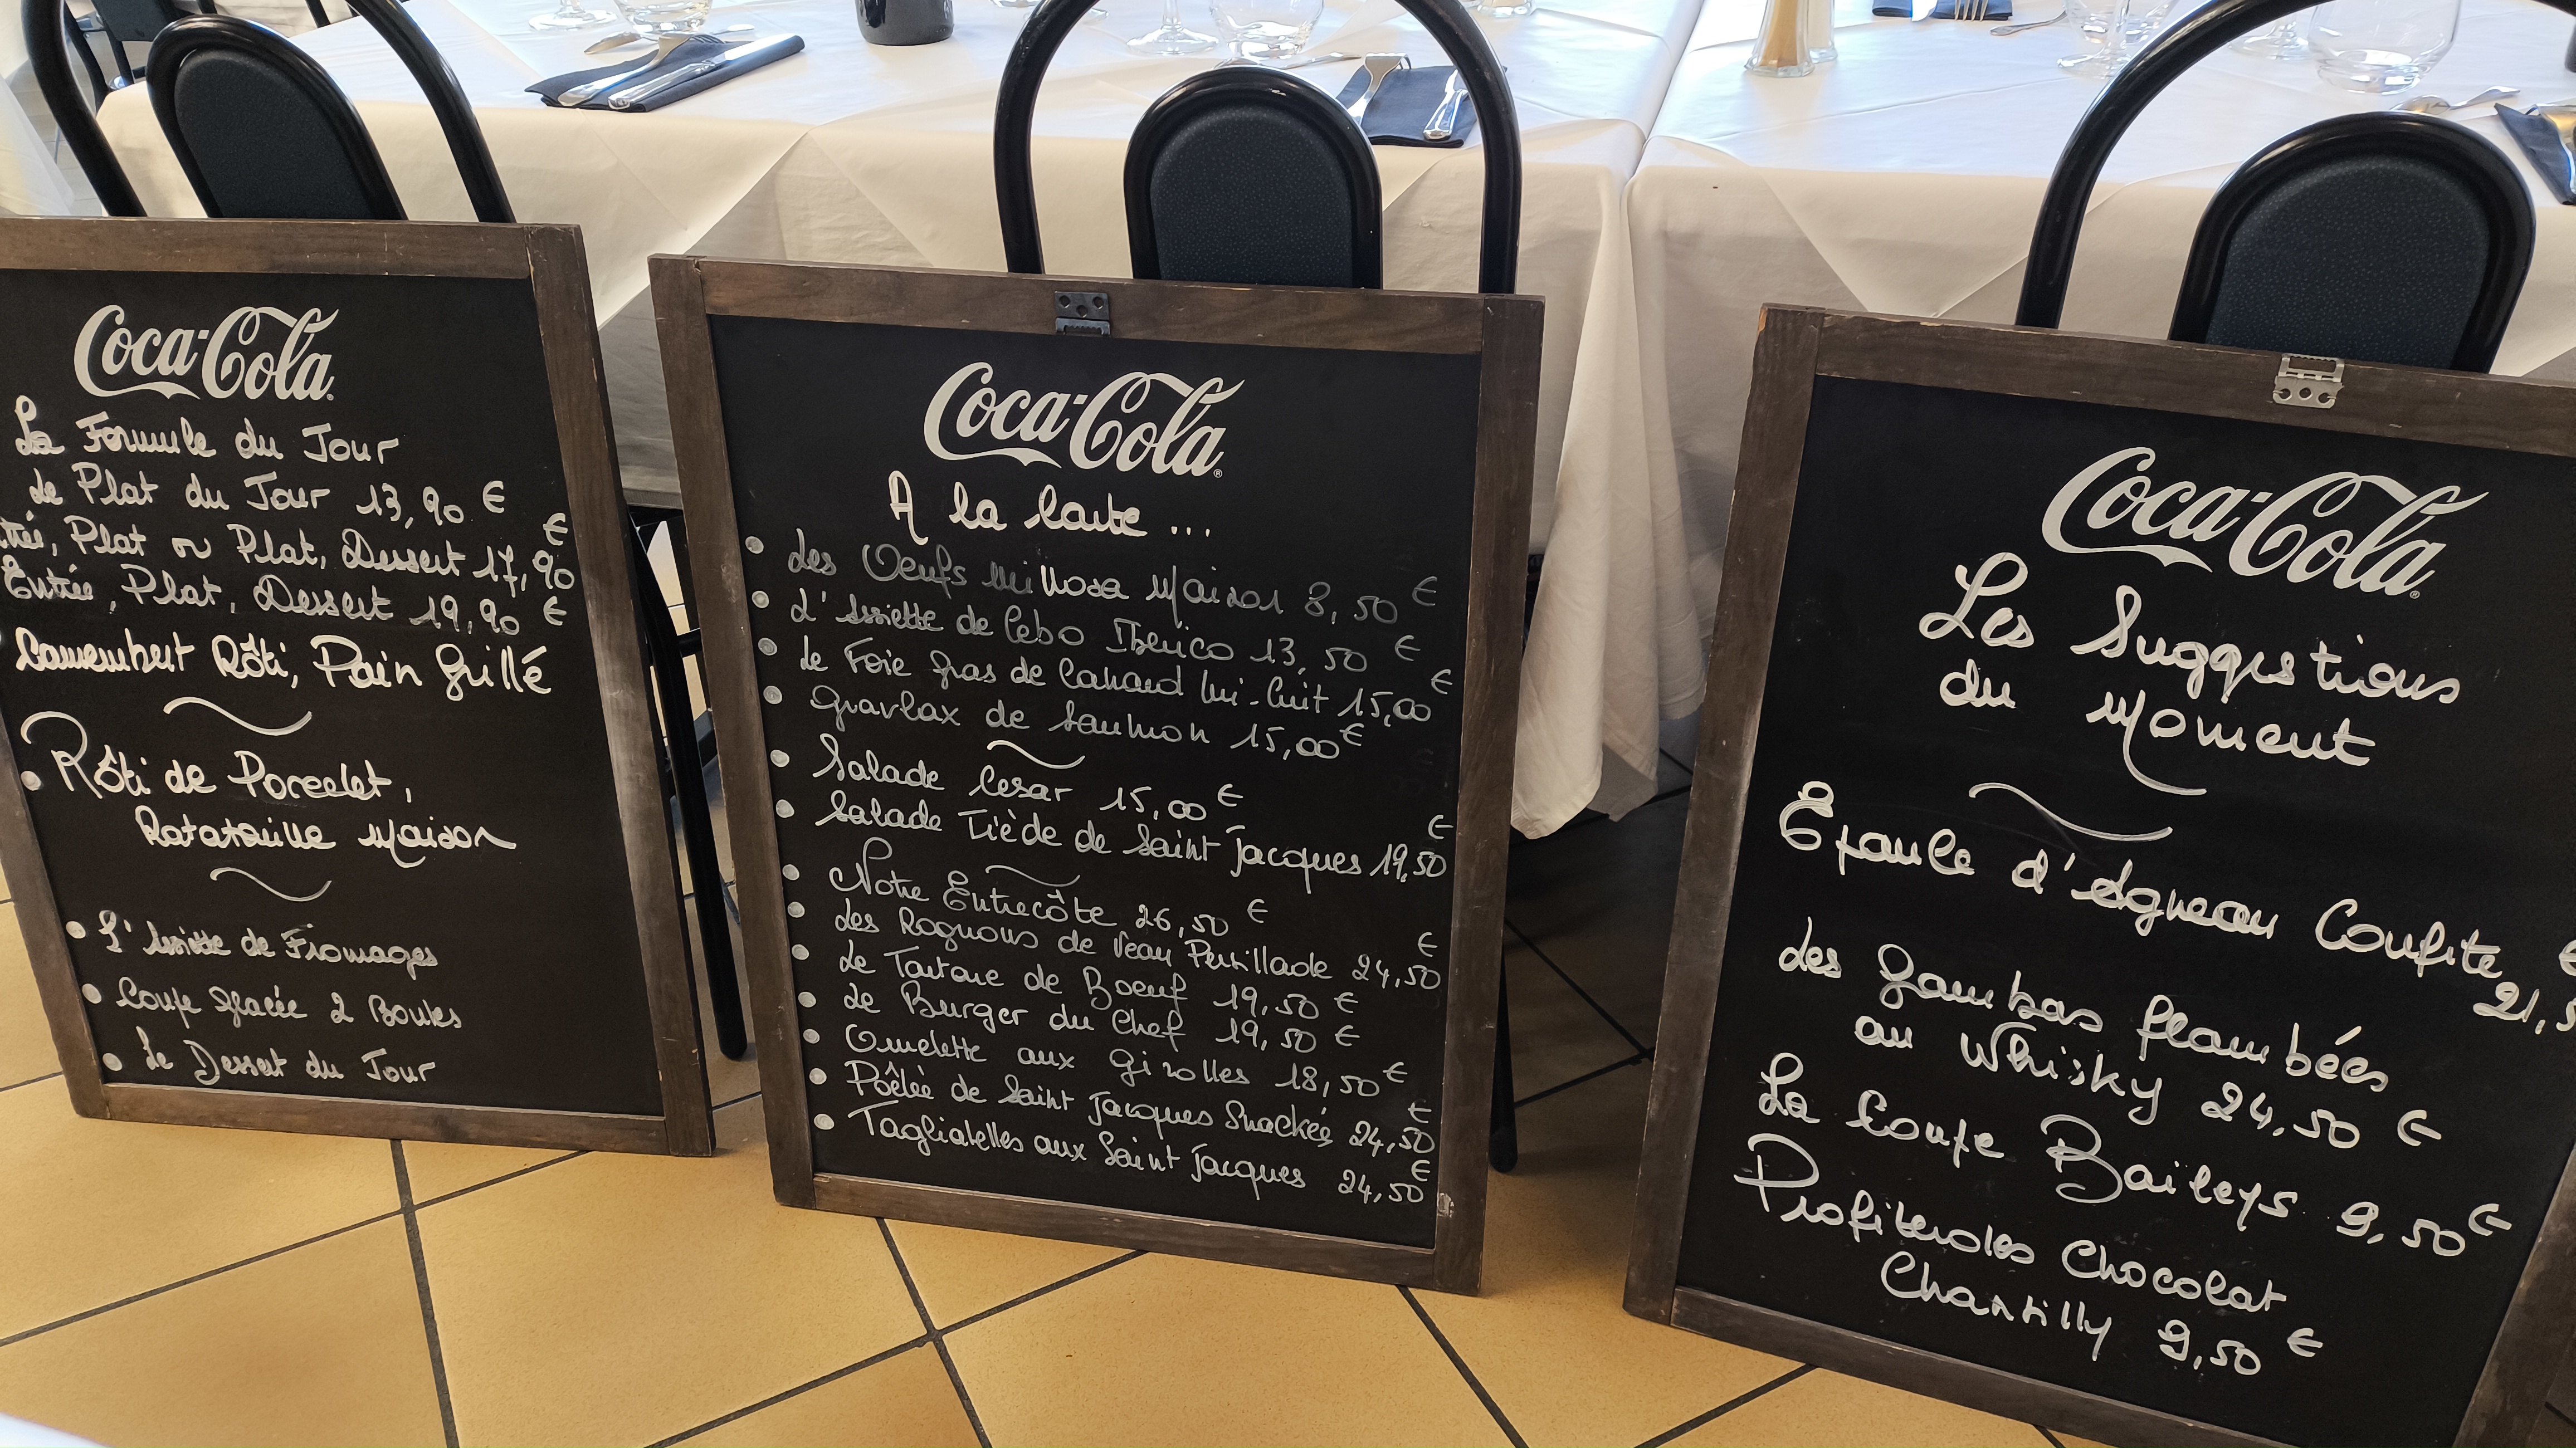 Coca-Cola
La Formule du Jour
Le Plat du Jour 13,90 €
Plat ou Plat, Dessert 17,90 €
Entrée, Plat, Dessert 19,90 €
Camembert Rôti, Pain Grillé
Rôti de Porcelet,
Ratatouille Maison
L'Assiette de Fromages
Coupe glacée 2 Boules
Le Dessert du Jour
Coca-Cola
A la Carte ...
Les Oeufs Mimosa Maison 8,50 €
L'Assiette de Cebo Iberico 13,50 €
Le Foie gras de Canard Mi-Cuit 15,00 €
Gravlax de Saumon 15,00 €
Salade Cesar 15,00 €
Salade Tiède de Saint Jacques 19,50 €
Notre Entrecôte 26,50 €
Les Rognons de Veau Persillade 24,50 €
Le Tartare de Boeuf 19,50 €
Le Burger du Chef 19,50 €
Omelette aux Girolles 18,50 €
Poêlée de Saint Jacques Snackées 24,50 €
Tagliatelles aux Saint Jacques 24,50 €
Coca-Cola
Les Suggestions
du Moment
Épaule d'Agneau Confite
€
Les Gambas flambées
au Whisky 24,50 €
La Coupe Baileys 9,50 €
Profiteroles Chocolat
Chantilly 9,50 €